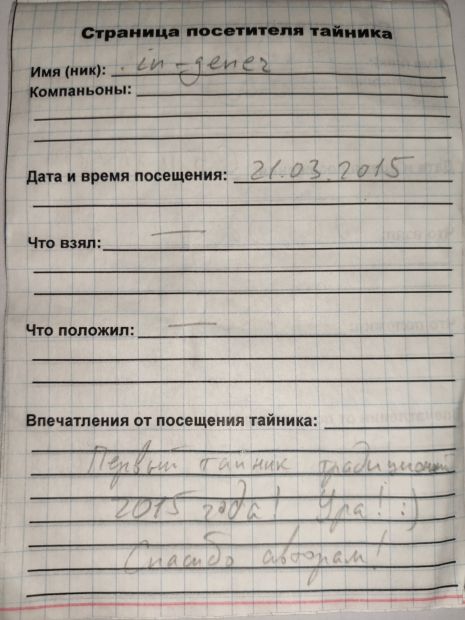 Страница посетителя тайника
Имя (ник): in-gener
Компаньоны:
Дата и время посещения: 21.03.2015
Что взял: —
Что положил: —
Впечатления от посещения тайника:
Первый тайник традиционный
2015 года! Ура! :)
Спасибо авторам!